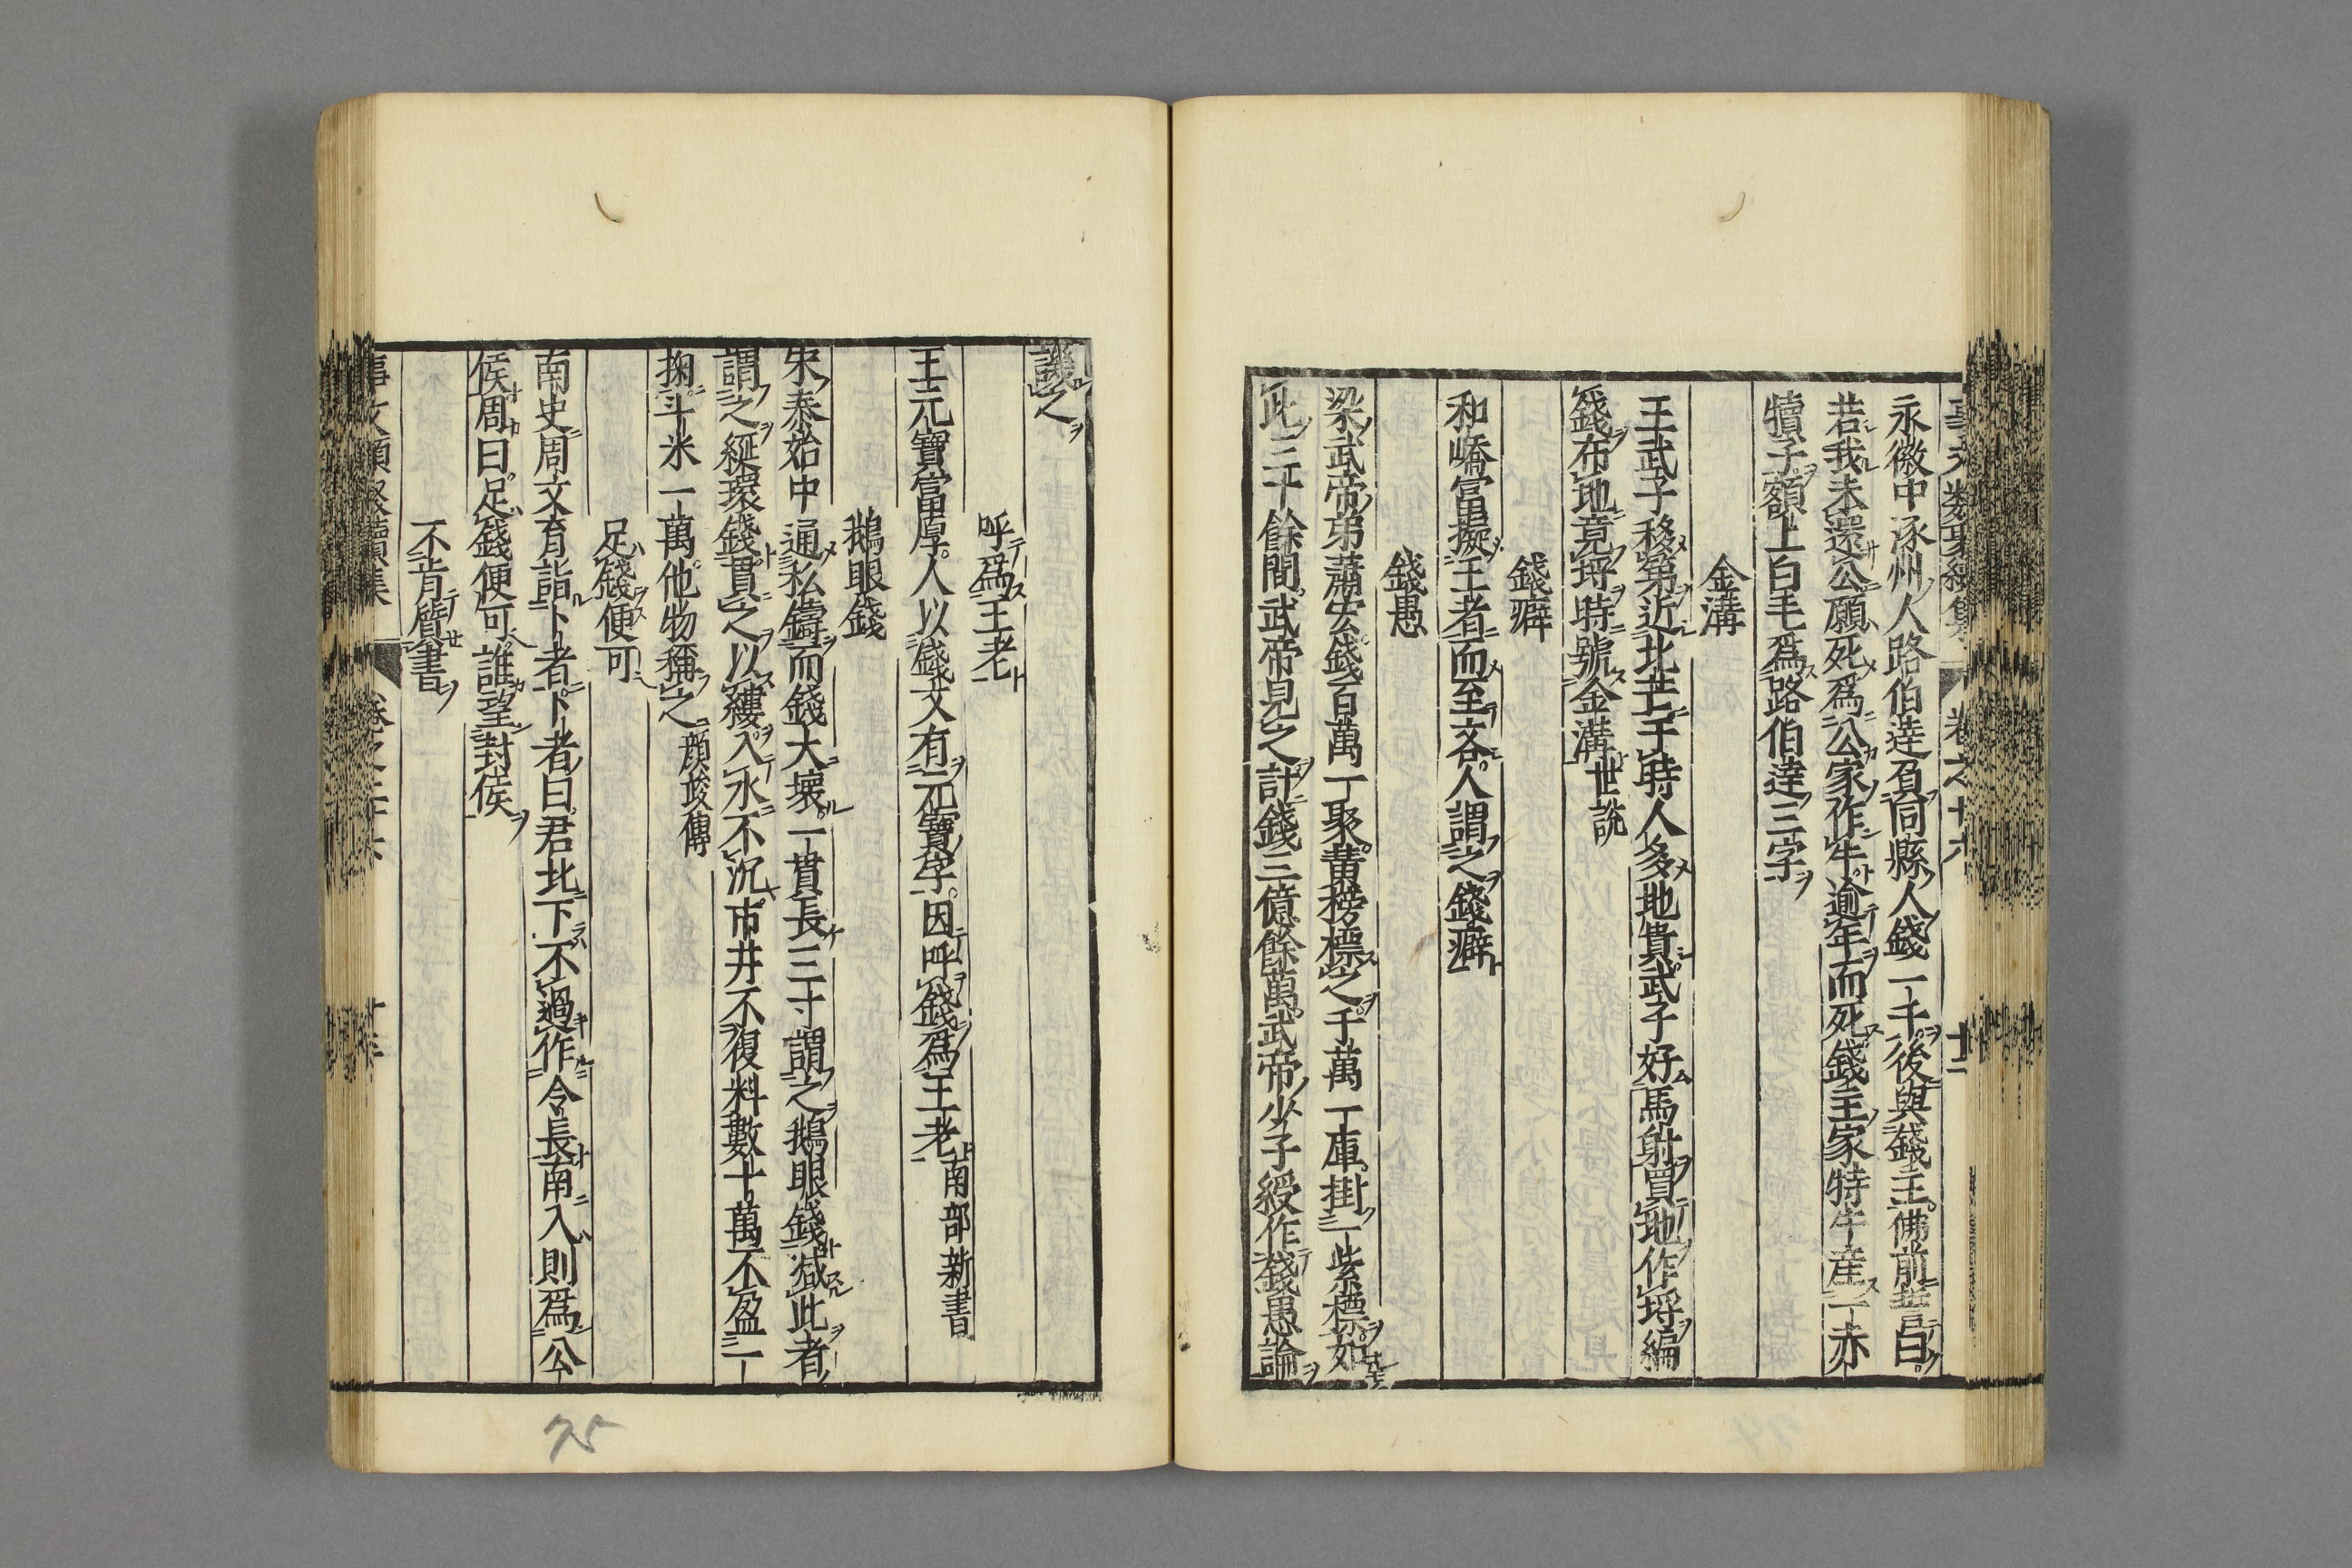 永徽中涿州人路伯達負同縣人錢一千後與錢主佛前誓曰
若我未還公願死爲公家作牛逾年而死錢主家特牛産一赤
犢子額上白毛爲路伯達三字
金溝
王武子移第近北芒于時人多地貴武子好馬射買地作埒編
錢布地竟埒時號金溝世說
錢癖
和嶠富擬王者而至吝人謂之錢癖
錢愚
梁武帝弟蕭宏錢百萬一聚黄榜標之千萬一庫掛一紫標如
此三十餘間武帝見之計錢三億餘萬武帝少子綬作錢愚論
譏之
呼爲王老
王元寶富厚人以錢文有元寶字因呼錢爲王老南部新書
鵝眼錢
宋泰始中通私鑄而錢大壞一貫長三寸謂之鵝眼錢减此者
謂之綖環錢貫之以縷入水不沉市井不復料數十萬不盈一
掬斗米一萬他物稱之顔竣傳
足錢便可
南史周文育詣卜者卜者曰君北下不過作令長南入則爲公
侯周曰足錢便可誰望封侯
不肯質書
事文類聚續集 卷之二十六